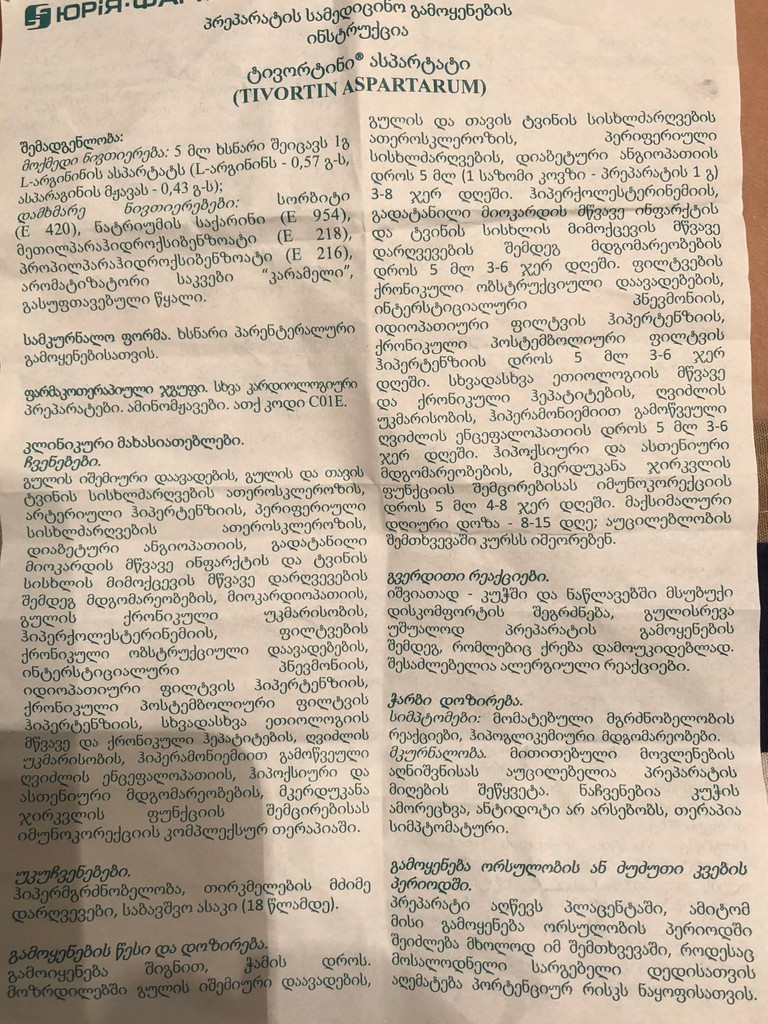 ЮРіЯ·ФАР
პრეპარატის სამედიცინო გამოყენების
ინსტრუქცია
ტივორტინი® ასპარტატი
(TIVORTIN ASPARTARUM)
შემადგენლობა:
მოქმედი ნივთიერება: 5 მლ ხსნარი შეიცავს 1გ
L-არგინინის ასპარტატს (L-არგინინს - 0,57 გ-ს,
ასპარაგინის მჟავას - 0,43 გ-ს);
დამხმარე ნივთიერებები: სორბიტი
(E 420), ნატრიუმის საქარინი (E 954),
მეთილპარაჰიდროქსიბენზოატი (E 218),
პროპილპარაჰიდროქსიბენზოატი (E 216),
არომატიზატორი საკვები “კარამელი”,
გასუფთავებული წყალი.
სამკურნალო ფორმა. ხსნარი პარენტერალური
გამოყენებისათვის.
ფარმაკოთერაპიული ჯგუფი. სხვა კარდიოლოგიური
პრეპარატები. ამინომჟავები. ათქ კოდი C01E.
კლინიკური მახასიათებლები.
ჩვენებები.
გულის იშემიური დაავადების, გულის და თავის
ტვინის სისხლძარღვების ათეროსკლეროზის,
არტერიული ჰიპერტენზიის, პერიფერიული
სისხლძარღვების ათეროსკლეროზის,
დიაბეტური ანგიოპათიის, გადატანილი
მიოკარდის მწვავე ინფარქტის და ტვინის
სისხლის მიმოქცევის მწვავე დარღვევების
შემდეგ მდგომარეობების, მიოკარდიოპათიის,
გულის ქრონიკული უკმარისობის,
ჰიპერქოლესტერინემიის, ფილტვების
ქრონიკული ობსტრუქციული დაავადებების,
ინტერსტიციალური პნევმონიის,
იდიოპათიური ფილტვის ჰიპერტენზიის,
ქრონიკული პოსტემბოლიური ფილტვის
ჰიპერტენზიის, სხვადასხვა ეთიოლოგიის
მწვავე და ქრონიკული ჰეპატიტების, ღვიძლის
უკმარისობის, ჰიპერამონიემიით გამოწვეული
ღვიძლის ენცეფალოპათიის, ჰიპოქსიური და
ასთენიური მდგომარეობების, მკერდუკანა
ჯირკვლის ფუნქციის შემცირებისას
იმუნოკორექციის კომპლექსურ თერაპიაში.
უკუჩვენებები.
ჰიპერმგრძნობელობა, თირკმელების მძიმე
დარღვევები, საბავშვო ასაკი (18 წლამდე).
გამოყენების წესი და დოზირება.
გამოიყენება შიგნით, ჭამის დროს.
მოზრდილებში გულის იშემიური დაავადების,
გულის და თავის ტვინის სისხლძარღვების
ათეროსკლეროზის, პერიფერიული
სისხლძარღვების, დიაბეტური ანგიოპათიის
დროს 5 მლ (1 საზომი კოვზი - პრეპარატის 1 გ)
3-8 ჯერ დღეში. ჰიპერქოლესტერინემიის,
გადატანილი მიოკარდის მწვავე ინფარქტის
და ტვინის სისხლის მიმოქცევის მწვავე
დარღვევების შემდეგ მდგომარეობების
დროს 5 მლ 3-6 ჯერ დღეში. ფილტვების
ქრონიკული ობსტრუქციული დაავადებების,
ინტერსტიციალური პნევმონიის,
იდიოპათიური ფილტვის ჰიპერტენზიის,
ქრონიკული პოსტემბოლიური ფილტვის
ჰიპერტენზიის დროს 5 მლ 3-6 ჯერ
დღეში. სხვადასხვა ეთიოლოგიის მწვავე
და ქრონიკული ჰეპატიტების, ღვიძლის
უკმარისობის, ჰიპერამონიემიით გამოწვეული
ღვიძლის ენცეფალოპათიის დროს 5 მლ 3-6
ჯერ დღეში. ჰიპოქსიური და ასთენიური
მდგომარეობების, მკერდუკანა ჯირკვლის
ფუნქციის შემცირებისას იმუნოკორექციის
დროს 5 მლ 4-8 ჯერ დღეში. მაქსიმალური
დღიური დოზა - 8-15 დღე; აუცილებლობის
შემთხვევაში კურსს იმეორებენ.
გვერდითი რეაქციები.
იშვიათად - კუჭში და ნაწლავებში მსუბუქი
დისკომფორტის შეგრძნება, გულისრევა
უშუალოდ პრეპარატის გამოყენების
შემდეგ, რომლებიც ქრება დამოუკიდებლად.
შესაძლებელია ალერგიული რეაქციები.
ჭარბი დოზირება.
სიმპტომები: მომატებული მგრძნობელობის
რეაქციები, ჰიპოგლიკემიური მდგომარეობები.
მკურნალობა. მითითებული მოვლენების
აღნიშვნისას აუცილებელია პრეპარატის
მიღების შეწყვეტა. ნაჩვენებია კუჭის
ამორეცხვა, ანტიდოტი არ არსებობს, თერაპია
სიმპტომატური.
გამოყენება ორსულობის ან ძუძუთი კვების
პერიოდში.
პრეპარატი აღწევს პლაცენტაში, ამიტომ
მისი გამოყენება ორსულობის პერიოდში
შეიძლება მხოლოდ იმ შემთხვევაში, როდესაც
მოსალოდნელი სარგებელი დედისათვის
აღემატება პორტენციურ რისკს ნაყოფისათვის.